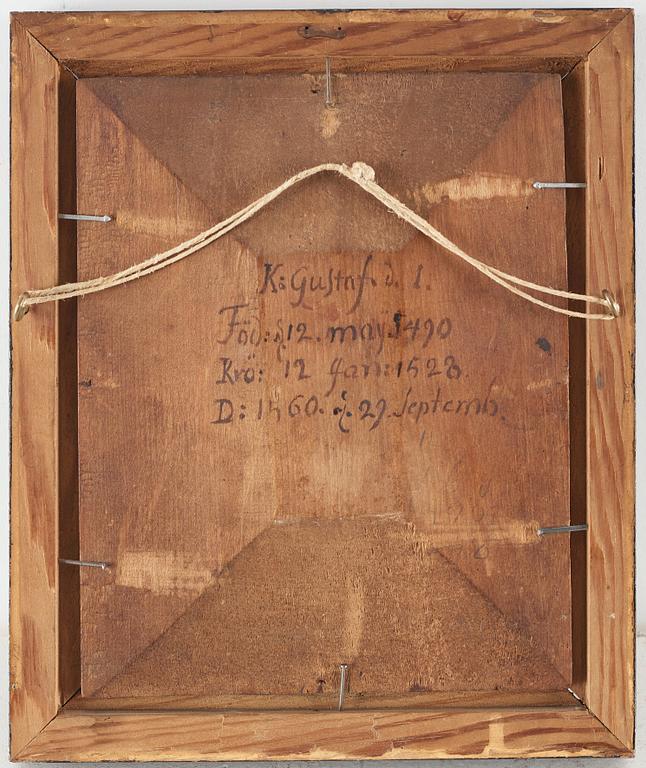 K: Gustaf. d. 1.
Föd: d 12. may. 1490
Krö: 12 Jan: 1528.
D: 1560. d. 29. Septemb.